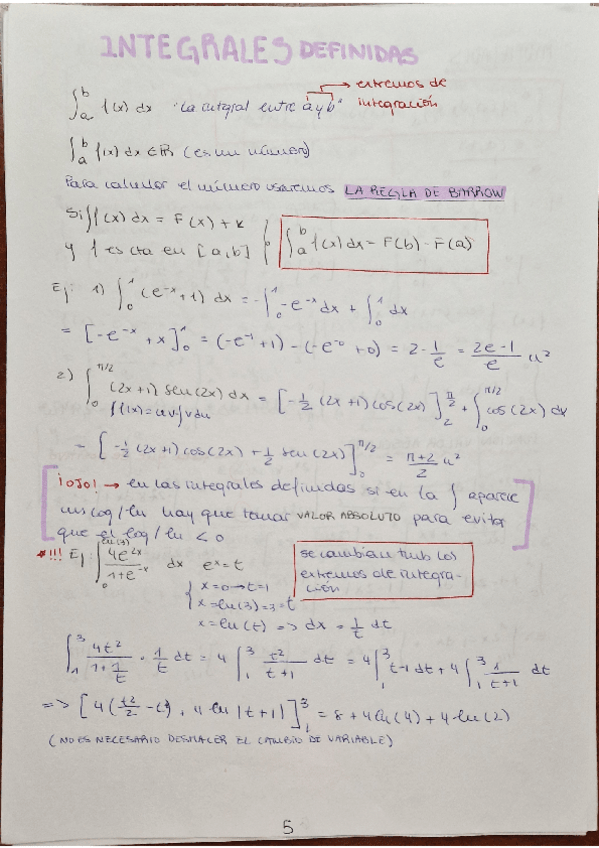 INTEGRALES DEFINIDAS
∫_a^b f(x) dx "La integral entre a y b" → extremos de integración
∫_a^b f(x) dx ∈ ℝ (es un número)
Para calcular el número usaremos LA REGLA DE BARROW
Si ∫f(x) dx = F(x) + k
y f es cta en [a,b] } ∫_a^b f(x) dx = F(b) - F(a)
Ej: 1) ∫_0^1 (e^-x + 1) dx = -∫_0^1 -e^-x dx + ∫_0^1 dx
= [-e^-x + x]_0^1 = (-e^-1 + 1) - (-e^-0 + 0) = 2 - 1/e = (2e-1)/e u²
2) ∫_0^π/2 (2x+1) sen(2x) dx = [-1/2 (2x+1) cos(2x)]_2^π/2 + ∫_0^π/2 cos(2x) dx
∫f(x) = uv ∫v du
= [-1/2 (2x+1) cos(2x) + 1/2 sen(2x)]_0^π/2 = (π+2)/2 u²
¡OJO! → en las integrales definidas si en la ∫ aparece
un log/ln hay que tomar VALOR ABSOLUTO para evitar
que el log/ln < 0
*!!! Ej: ∫_0^ln(3) 4e^2x/(1+e^-x) dx e^x = t
se cambian tmb los
extremos de integra-
ción
{ x = 0 → t = 1
x = ln(3) = 3 = t
x = ln(t) => dx = 1/t dt
∫_1^3 4t²/(1+1/t) · 1/t dt = 4 ∫_1^3 t²/(t+1) dt = 4 ∫_1^3 t-1 dt + 4 ∫_1^3 1/(t+1) dt
=> [4(t²/2 - t) + 4 ln |t+1|]_1^3 = 8 + 4 ln(4) + 4 ln(2)
(NO ES NECESARIO DESHACER EL CAMBIO DE VARIABLE)
5